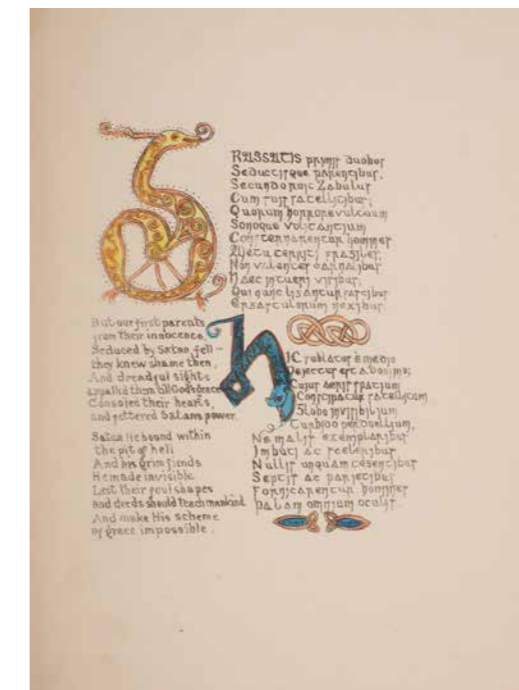 GRASSATIS primis duobus
Seductisque parentibus,
Secundo ruit Zabulus
Cum suis satellitibus,
Quorum horrore vultuum
Sonoque volitantium
Consternarentur homines
Metu territi fragiles,
Non valentes carnalibus
Haec intueri visibus,
Qui nunc ligantur fascibus
Ergastulorum nexibus.
But our first parents
from their innocence,
Seduced by Satan, fell –
they knew shame then,
And dreadful sights
appalled them all God's grace
Consoled their hearts,
and fettered Satans power.
Satan lie bound within
the pit of hell
And his grim fiends
He made invisible
Lest their foul shapes
and deeds should teach mankind
And make His scheme
of grace impossible.
HIC sublatus e medio
Dejectus est a Domino;
Cujus aeris spatium
Constipatur satellitum
Globo invisibilium
Turbido perduellium,
Ne malis exemplaribus
Imbuti ac sceleribus
Nullis unquam tegentibus
Septis ac parietibus
Fornicarentur homines
Palam omnium oculis